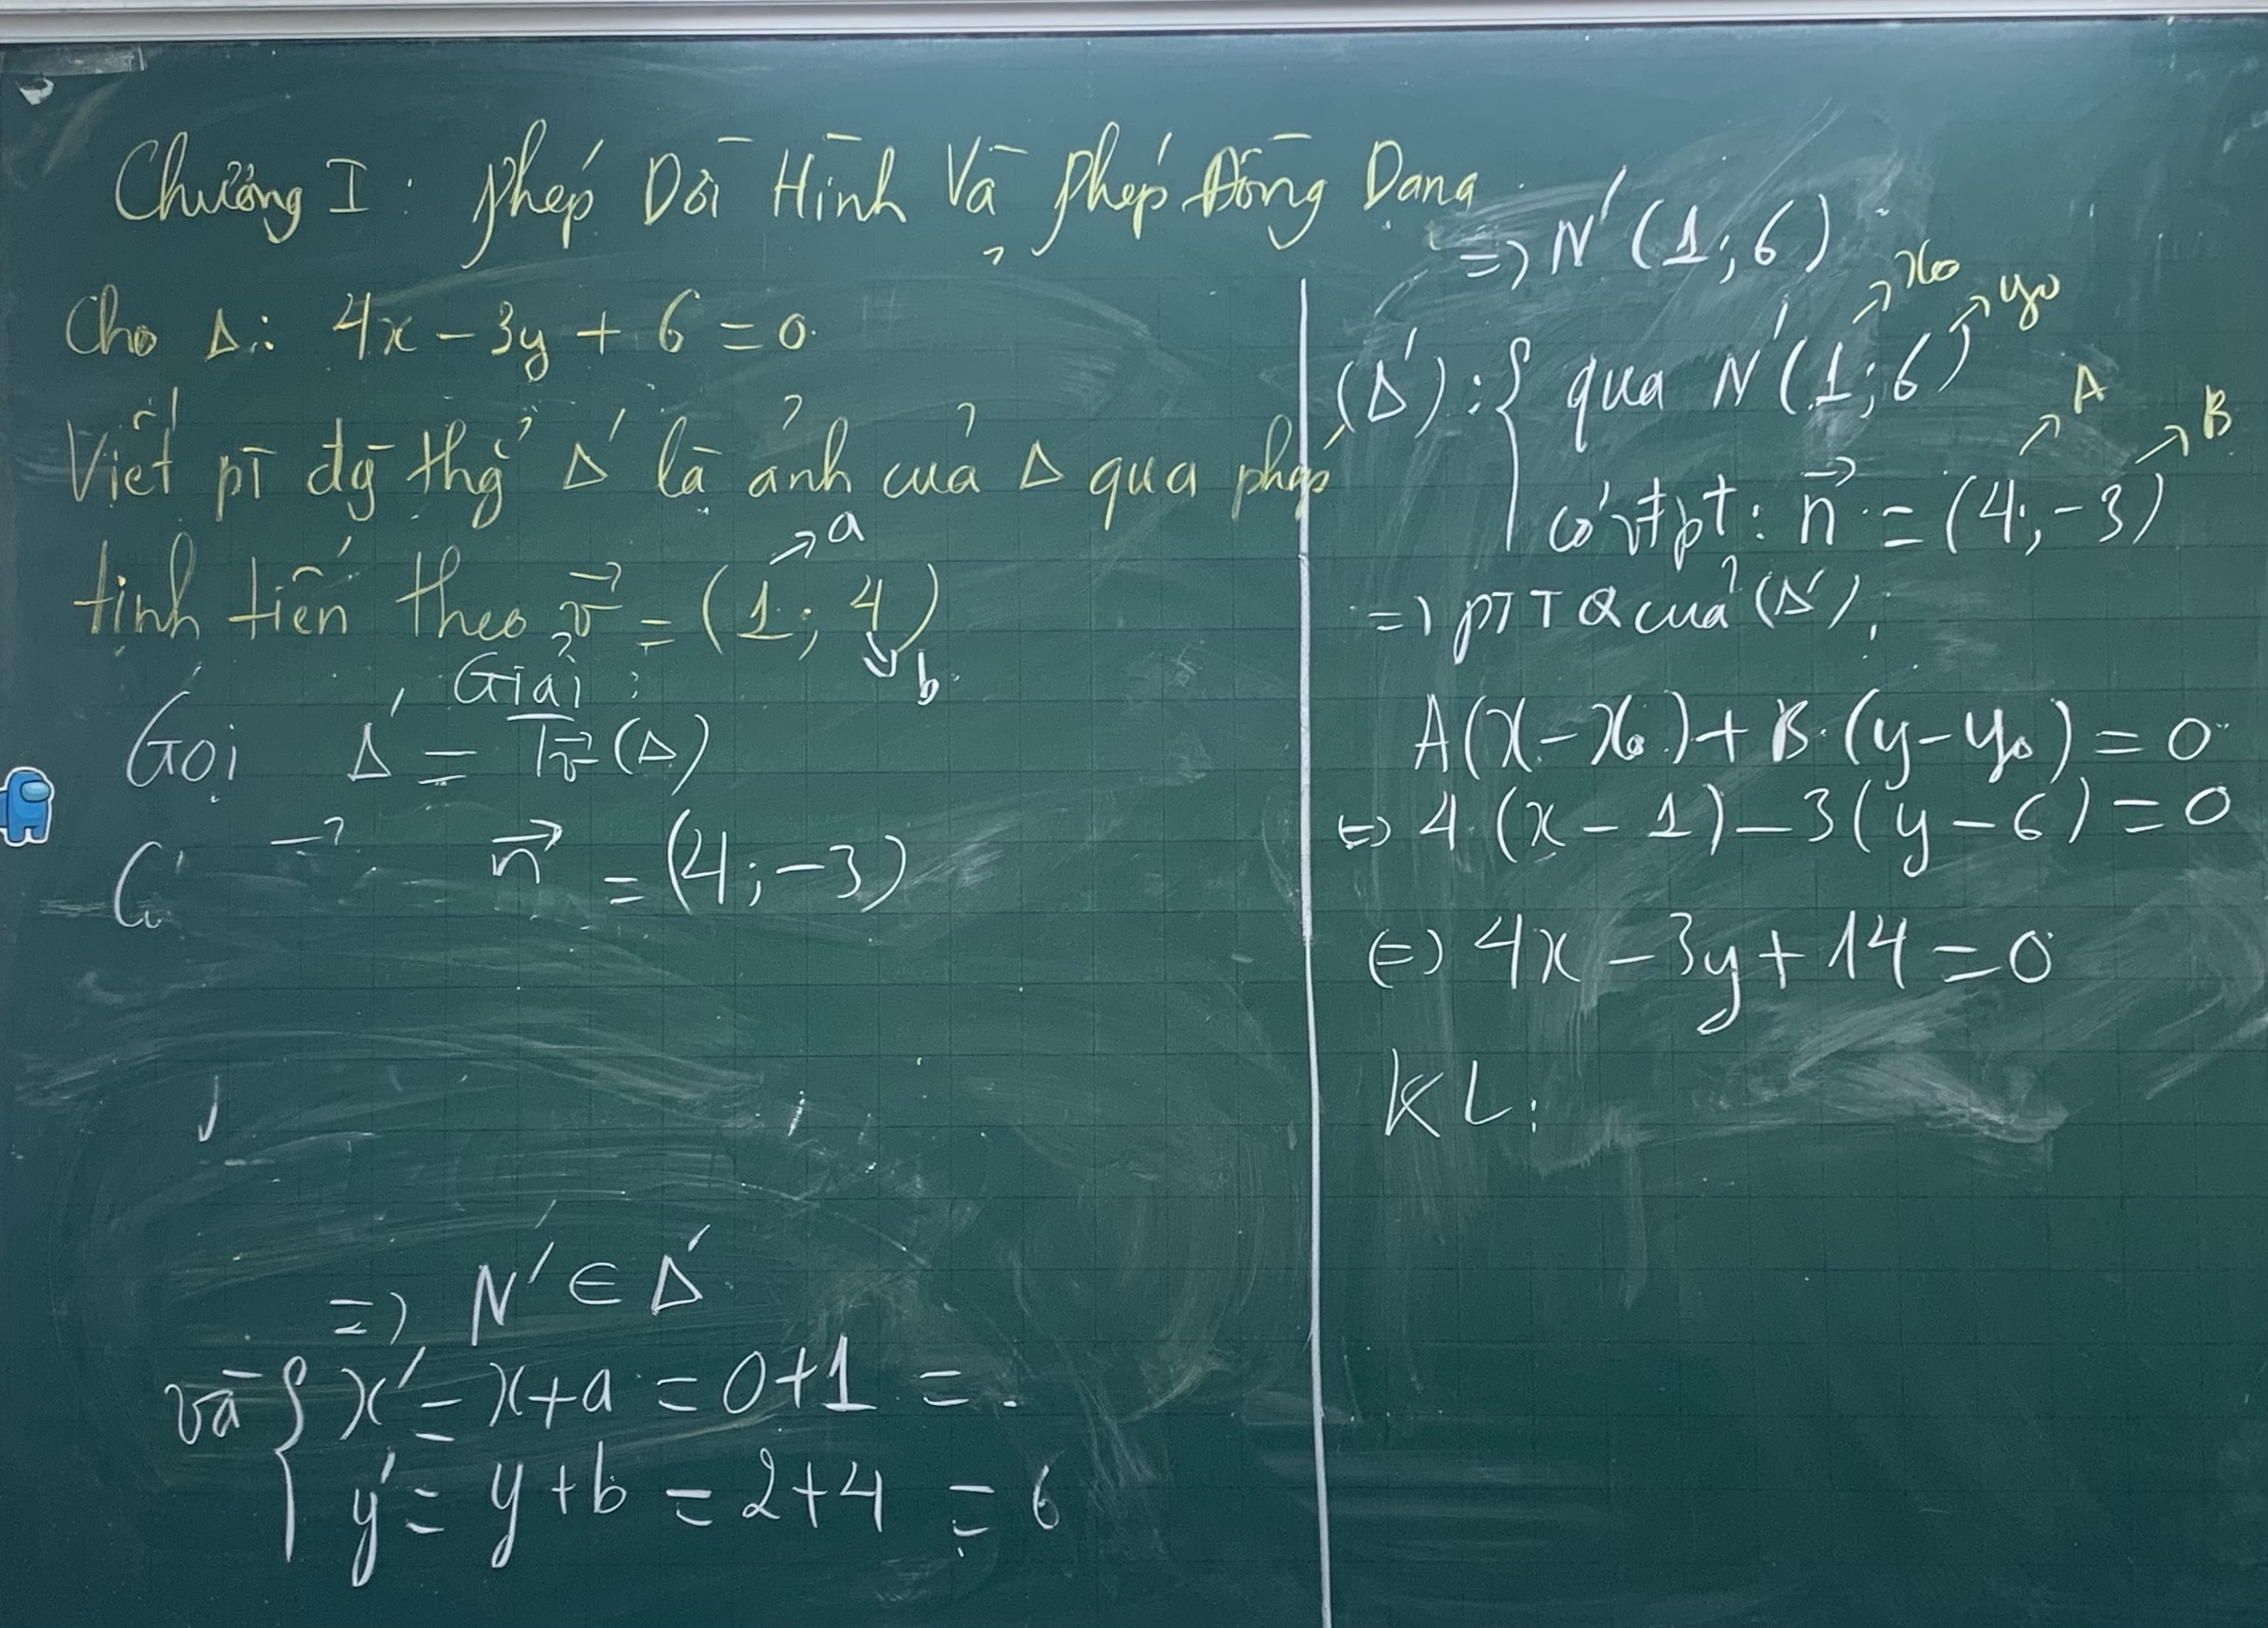 Chương I: Phép Dời Hình Và Phép Đồng Dạng
Cho Δ: 4x - 3y + 6 = 0
Viết pt đg thg Δ' là ảnh của Δ qua phép
tịnh tiến theo v⃗ = (1; 4)
a
b
Giải:
Gọi Δ' = Tv⃗(Δ)
n⃗ = (4; -3)
=> N' ∈ Δ'
và { x' = x + a = 0 + 1 =
y' = y + b = 2 + 4 = 6
=> N'(1; 6)
x₀ y₀
(Δ'): { qua N'(1; 6)
A B
có vtpt: n⃗ = (4; -3)
=> PTTQ của (Δ'):
A(x - x₀) + B(y - y₀) = 0
<=> 4(x - 1) - 3(y - 6) = 0
<=> 4x - 3y + 14 = 0
KL: